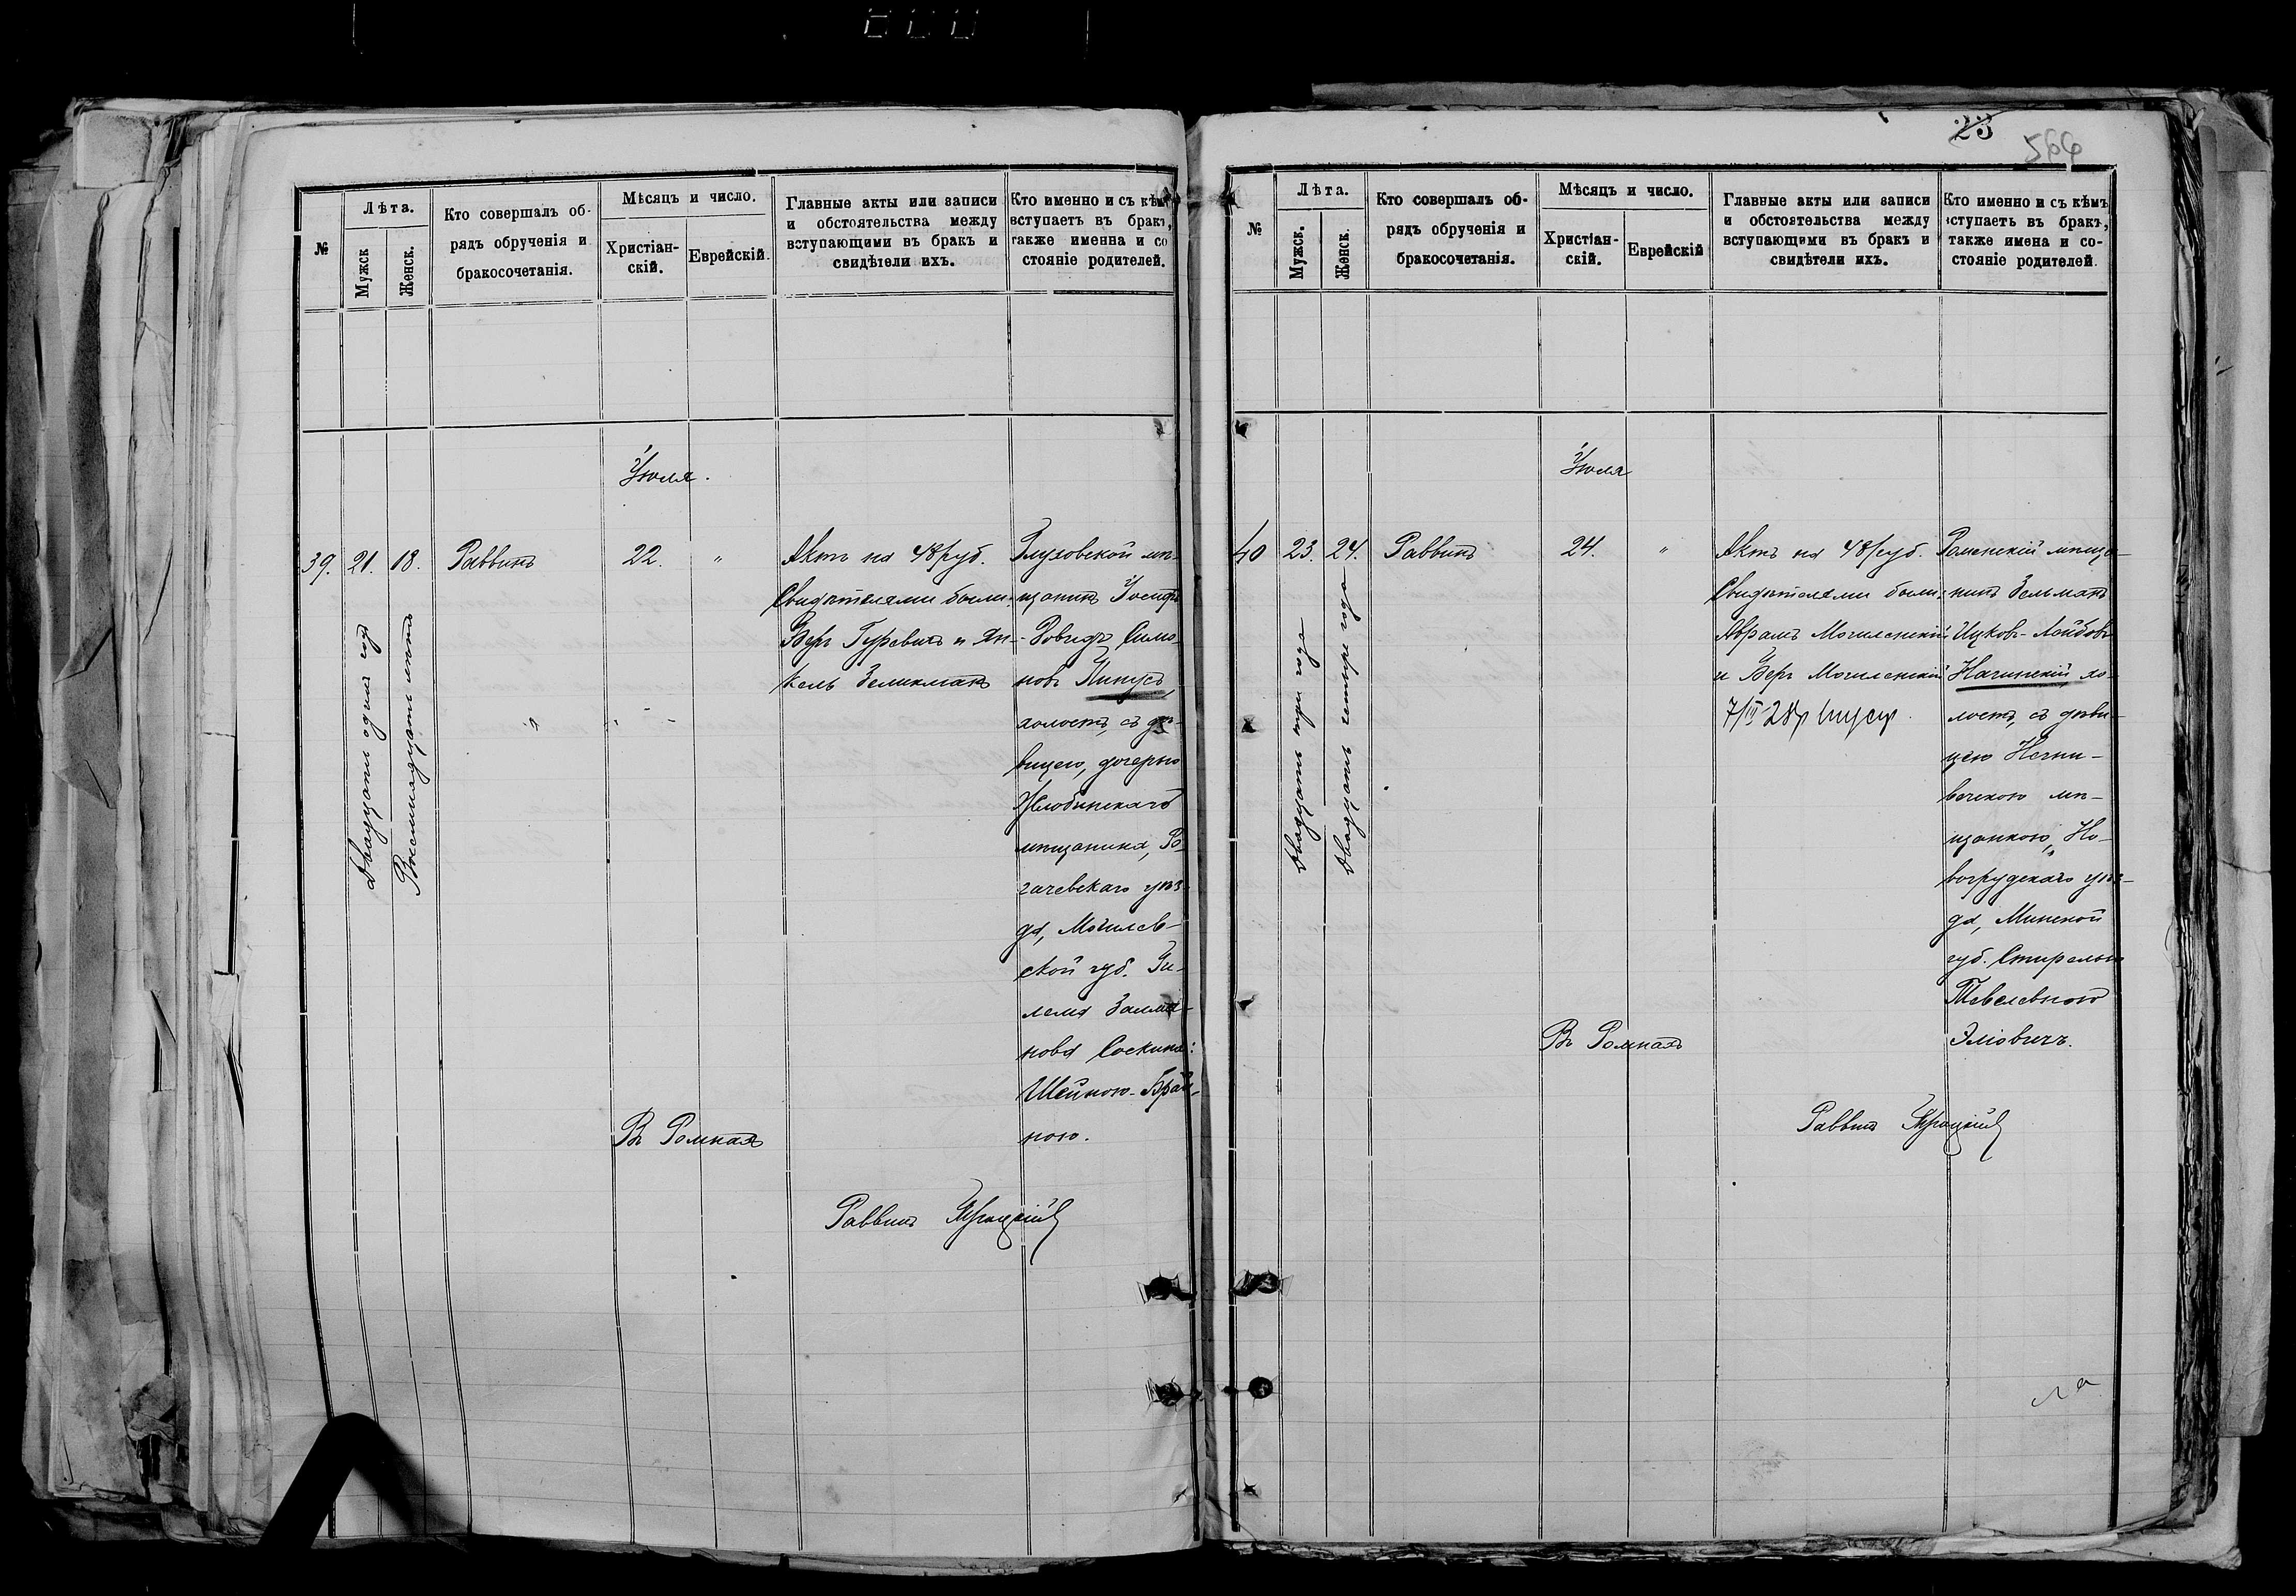 №
Лѣта.
Мужск
Женск.
Кто совершалъ об-
рядъ обрученія и
бракосочетанія.
Мѣсяцъ и число.
Христіан-
скій.
Еврейскій.
Главные акты или записи
и обстоятельства между
вступающими въ бракъ и
свидѣтели ихъ.
Кто именно и съ кѣмъ
вступаетъ въ бракъ,
также именна и со
стояніе родителей.
Іюля.
39.
21.
18.
Двадцать одинъ годъ
Восемнадцать лѣтъ
Раввинъ
22.
"
Актъ на 48 руб.
Свидѣтелями были:
Беръ Гуревичъ и Ян-
кель Зеликманъ
Глуховской мѣ-
щанинъ Іосифъ
Довидъ Симо-
новъ Пинусъ,
холостъ, съ дѣ-
вицею, дочерью
Жлобинскаго
мѣщанина, Ро-
гачевскаго уѣз-
да, Могилев-
ской губ. Ги-
лема Залма-
нова Соскина:
Шейною-Брай-
ною.
Въ Ромнахъ
Раввинъ
23
566
№
Лѣта.
Мужск.
Женск.
Кто совершалъ об-
рядъ обрученія и
бракосочетанія.
Мѣсяцъ и число.
Христіан-
скій.
Еврейскій
Главные акты или записи
и обстоятельства между
вступающими въ бракъ и
свидѣтели ихъ.
Кто именно и съ кѣмъ
вступаетъ въ бракъ,
также имена и со-
стояніе родителей.
Іюля
40
23.
24.
Двадцать три года
Двадцать четыре года
Раввинъ
24.
"
Актъ на 48 руб.
Свидѣтелями были:
Абрамъ Могиленскій
и Беръ Могиленскій
7/IV 28р
Роменскій мѣща-
нинъ Зельманъ
Ицковъ-Лейбовъ
Начинскій, хо-
лостъ, съ дѣви-
цею Негни-
вечскою мѣ-
щанкою, Но-
вогрудскаго уѣз-
да, Минской
губ. Стирелью
Тевелевною
Эліовичъ.
Въ Ромнахъ
Раввинъ